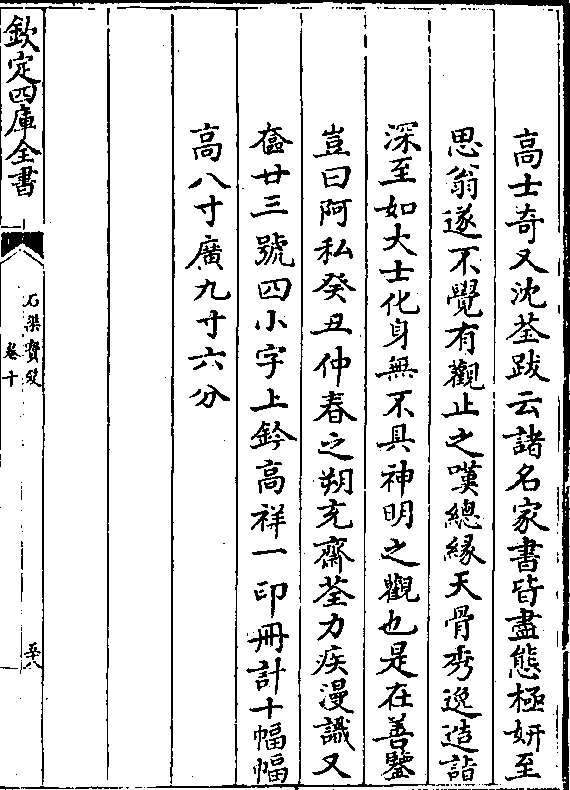 高士奇又沈荃跋云諸名家書皆盡態極妍至
思翁遂不覺有觀止之嘆總緣天骨秀逸造詣
深至如大士化身無不具神明之觀也是在善鑒
豈曰阿私癸丑仲春之朔充齋荃力疾漫識又
奩廿三號四小字上鈐高祥一印冊計十幅幅
高八寸廣九寸六分
欽定四庫全書
石渠寶笈
卷十
五十八